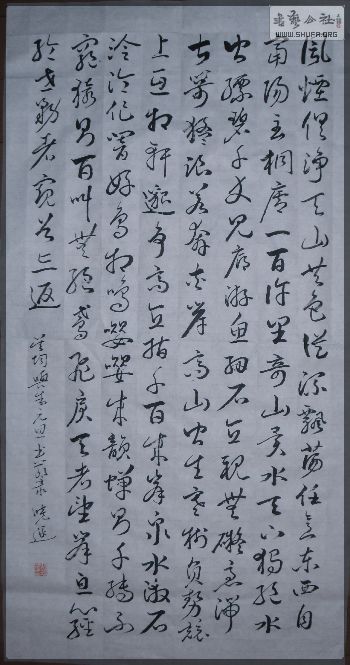 書藝公社
WWW.SHUFA.ORG
風煙俱淨天山共色從流飄蕩任意東西自
富陽至桐廬一百許里奇山異水天下獨絕水
皆縹碧千丈見底游魚細石直視無礙急湍
甚箭猛浪若奔夾岸高山皆生寒樹負勢競
上互相軒邈爭高直指千百成峰泉水激石
泠泠作響好鳥相鳴嚶嚶成韻蟬則千轉不
窮猿則百叫無絕鳶飛戾天者望峰息心經
綸世務者窺谷忘返
吳均與朱元思書